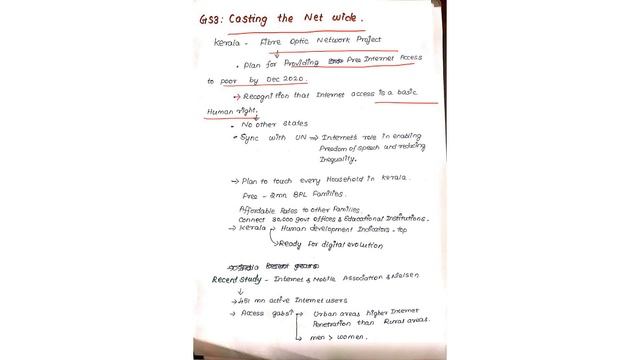 GS3: Casting the Net wide.
Kerala - Fibre Optic Network Project
• Plan for Providing Free Internet Access
to poor by Dec 2020.
→ Recognition that Internet access is a basic
Human right.
• No other states
• Sync with UN ⇒ Internet's role in enabling
Freedom of speech and reducing
Inequality.
→ Plan to touch every Household in Kerala.
Free - 2mn BPL Families.
Affordable Rates to other Families
Connect 30,000 govt offices & Educational Institutions.
→ Kerala → Human development Indicators - Top
→ Ready for digital evolution
Recent study - Internet & Mobile Association & Nielsen
→ 451 mn active Internet users
→ Access gabs↑ → Urban areas higher Internet
Penetration than Rural areas.
→ men > women.